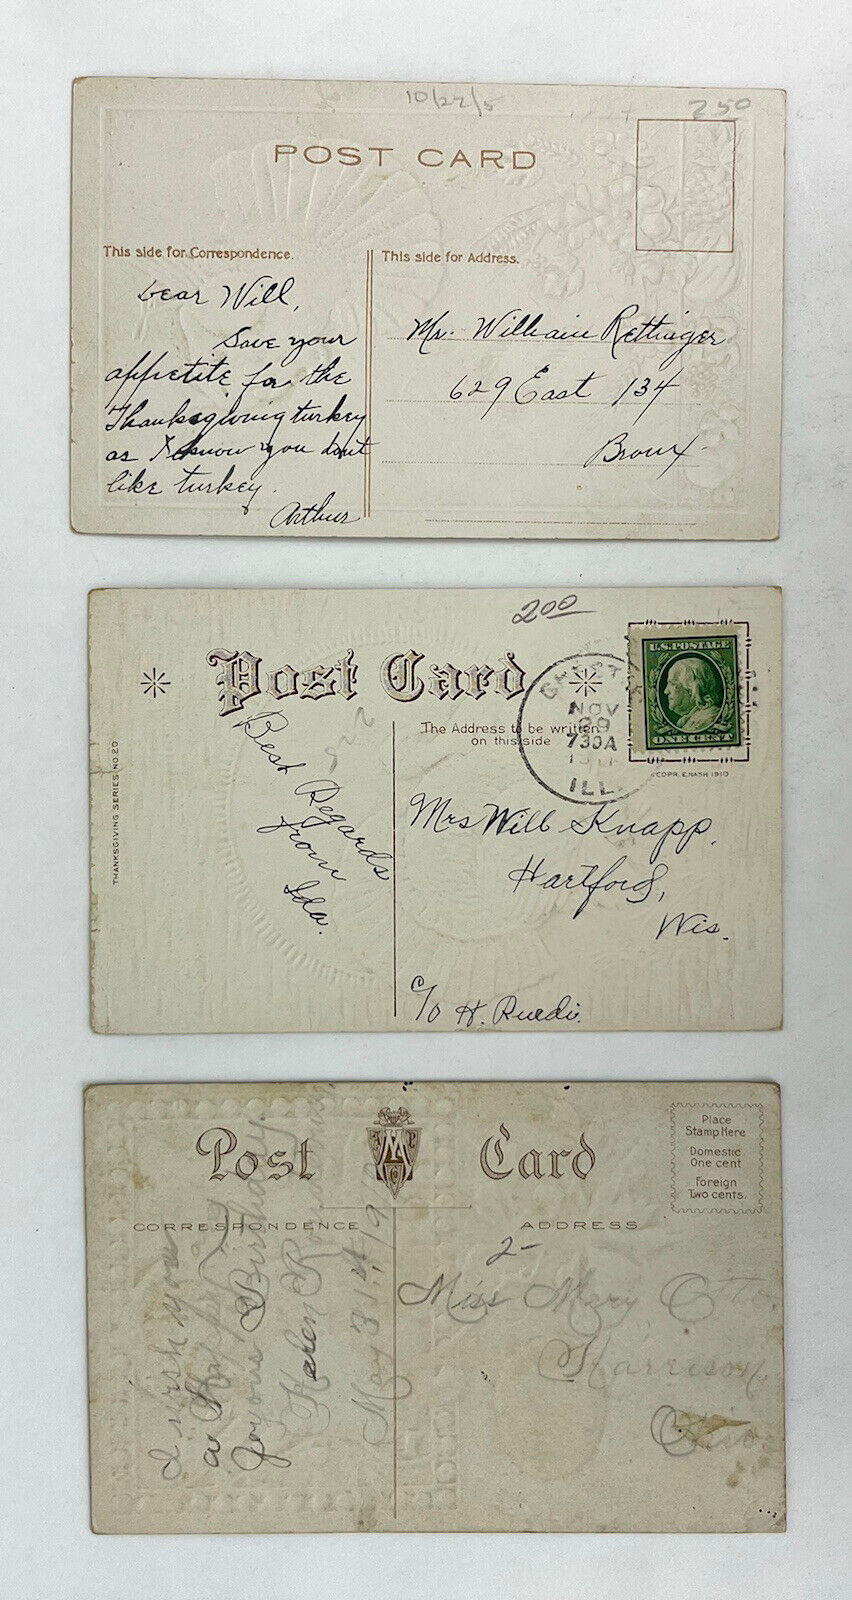 10/22/5
250
POST CARD
This side for Correspondence.
This side for Address.
Dear Will,
Save your
appetite for the
Thanksgiving turkey
as I know you don't
like turkey.
Arthur
Mr. William Rettinger
629 East 134
Bronx.
200
Post Card
U.S. POSTAGE
ONE CENT
NOV
29
730A
ILL.
The Address to be written
on this side
COPR. E. NASH 1910
THANKSGIVING SERIES NO. 20
Best Regards
from
Ida.
Mrs Will Knapp.
Hartford,
Wis.
c/o H. Ruedi.
Post Card
Place
Stamp Here
Domestic
One cent
Foreign
Two cents.
CORRESPONDENCE
ADDRESS
2-
I wish you
a Happy
Joyous Birthday.
Helen
May 31st 19
Miss Mary Otto.
Harrison,